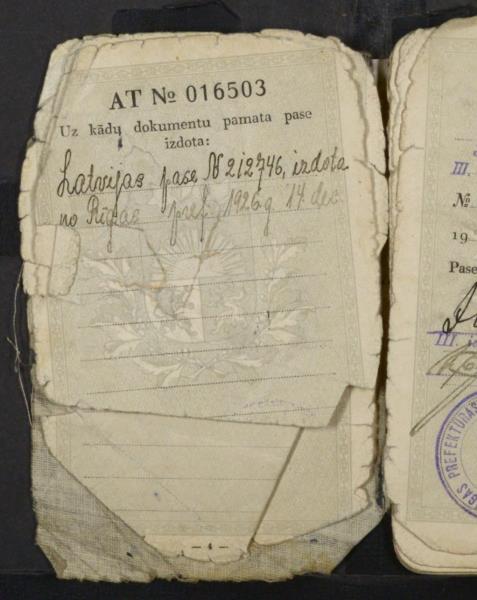 AT № 016503
Uz kādu dokumentu pamata pase
izdota:
Latvijas pase № 212746, izdota
no Rīgas pref. 1926 g. 14. dec.
- 4 -
III.
№
19
Pase
III.
GAS PREFEKTŪRAS